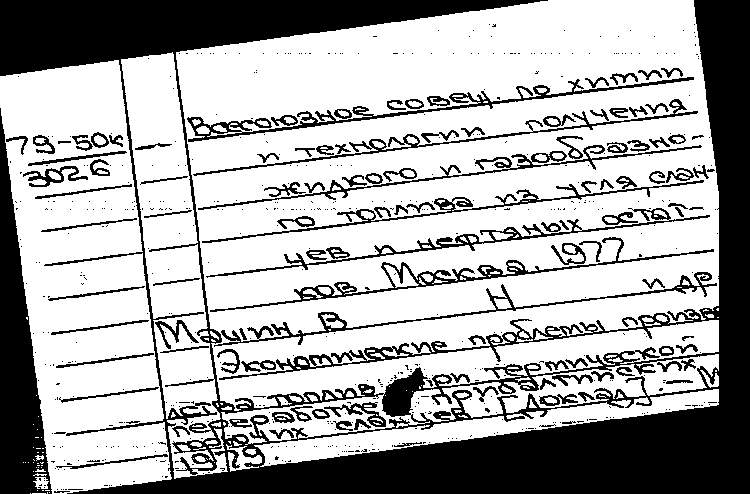 79-50к — Всесоюзное совещ. по химии
3026 и технологии получения
жидкого и газообразно-
го топлива из угля, слан-
цев и нефтяных остат-
ков. Москва. 1977.
Машин, В Н и др
Экономические проблемы произво
дства топлив при термической
переработке прибалтийских
горючих сланцев. [Доклад] — М
1979.